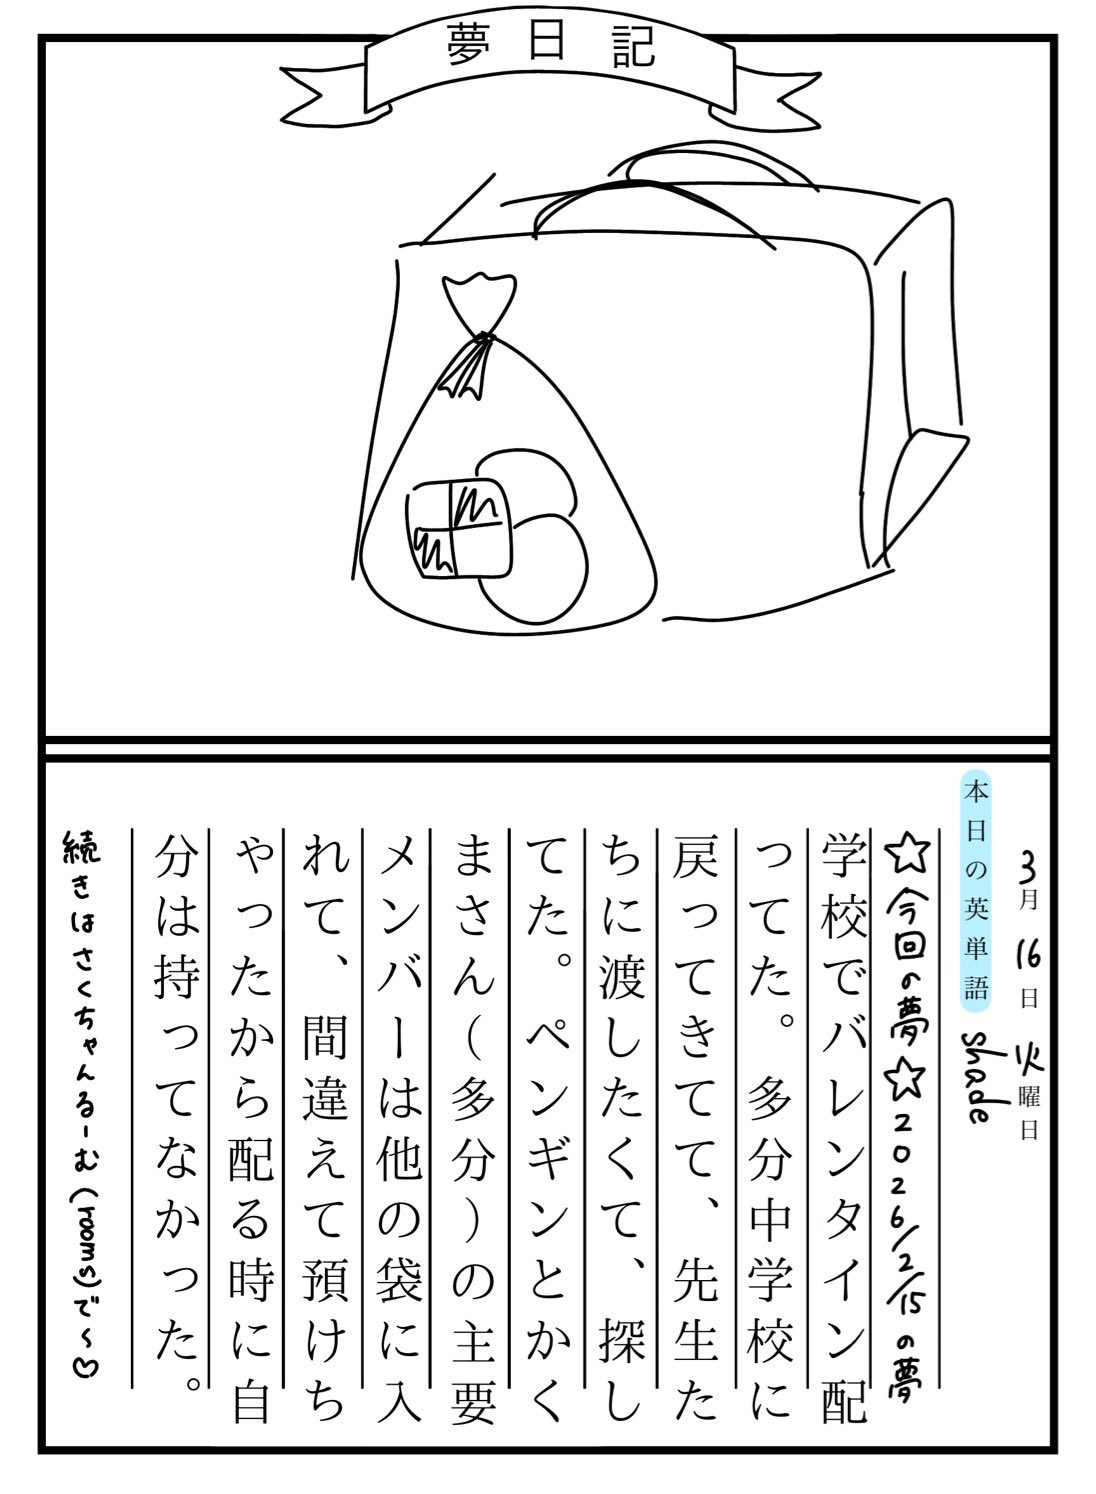 夢日記
3月16日火曜日
本日の英単語 shade
☆今回の夢☆2026/2/15の夢
学校でバレンタイン配
ってた。多分中学校に
戻ってきてて、先生た
ちに渡したくて、探し
てた。ペンギンとかく
まさん(多分)の主要
メンバーは他の袋に入
れて、間違えて預けち
ゃったから配る時に自
分は持ってなかった。
続きはさくちゃんるーむ(rooms)で〜♡